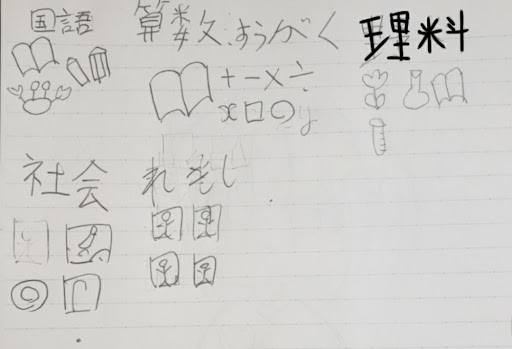 国語
算数、すうがく
理料
+-×÷
x□○y
社会
れきし